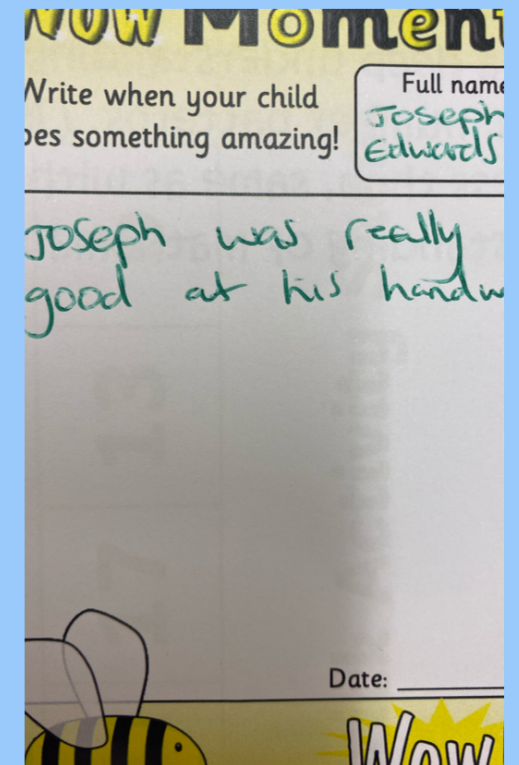 Wow Moment
Write when your child
oes something amazing!
Full name
Joseph
Edwards
Joseph was really
good at his handw
Date:
Wow